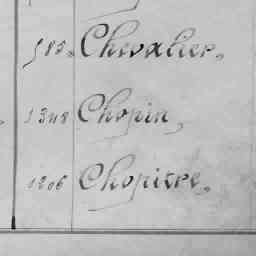 585. Chevalier.
1348 Chopin,
1206 Chopitre.